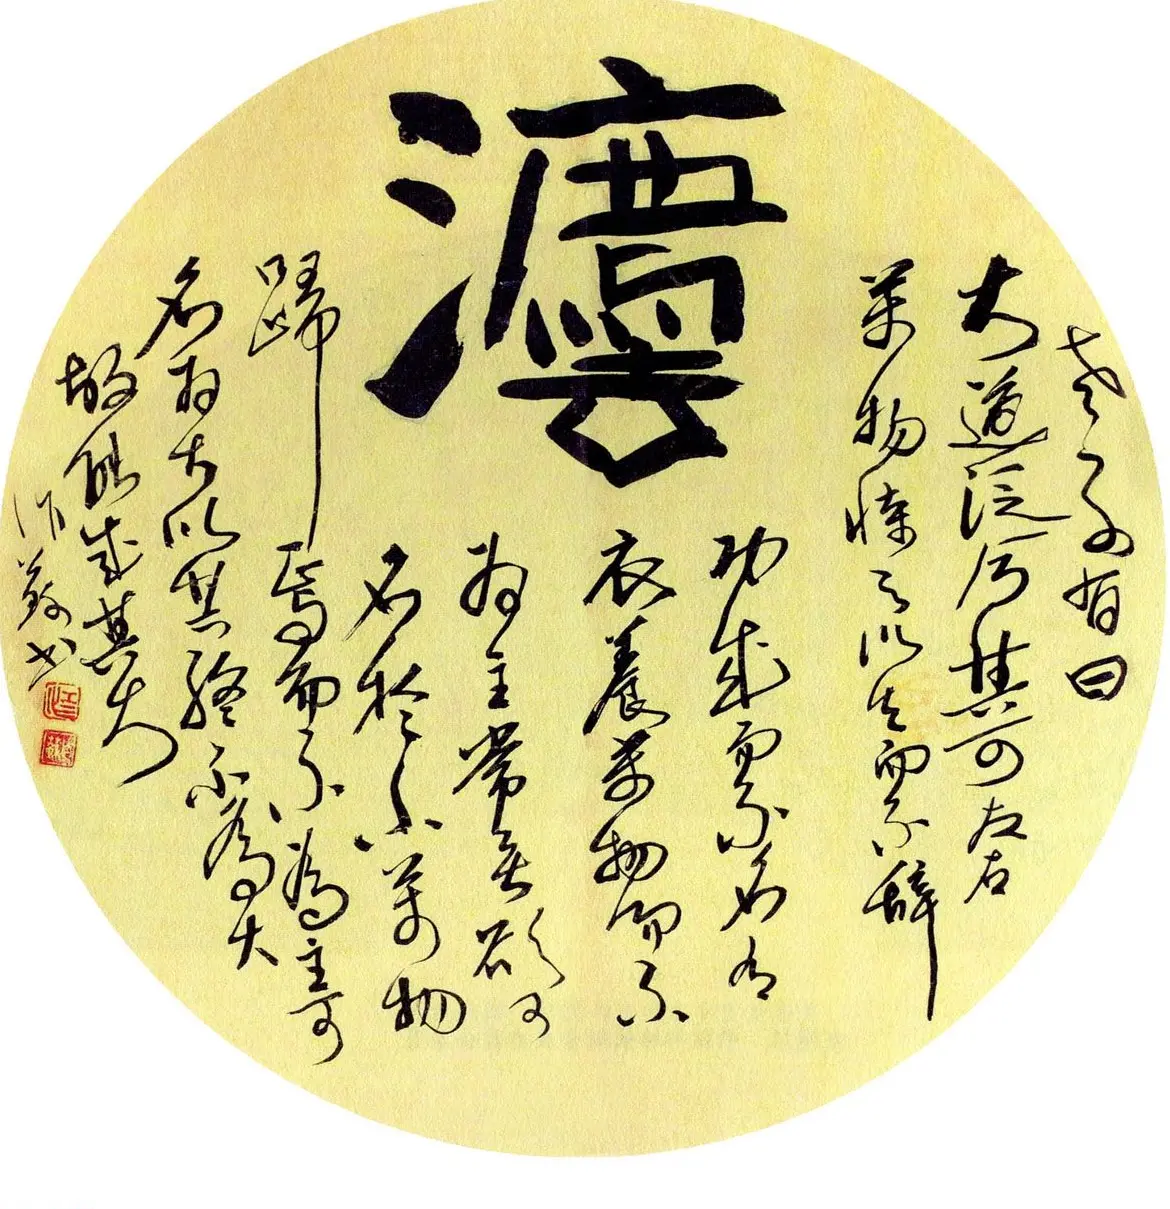 灋
老子有曰
大道泛兮其可左右
萬物恃之以生而不辭
功成而不名有
衣養萬物而不
為主常無欲可
名於小萬物
歸焉而不為主可
名為大以其終不為大
故能成其大